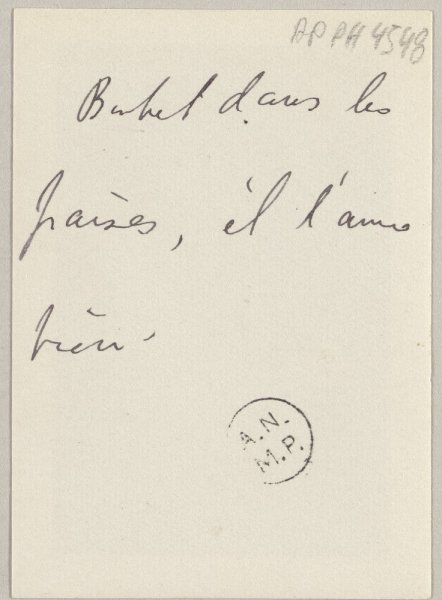 APPH4548
Bubet dans les
fraises, il l'aime
bien.
A.N.
M.P.